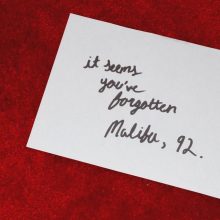 it seems
you've
forgotten
Malibu, 92.